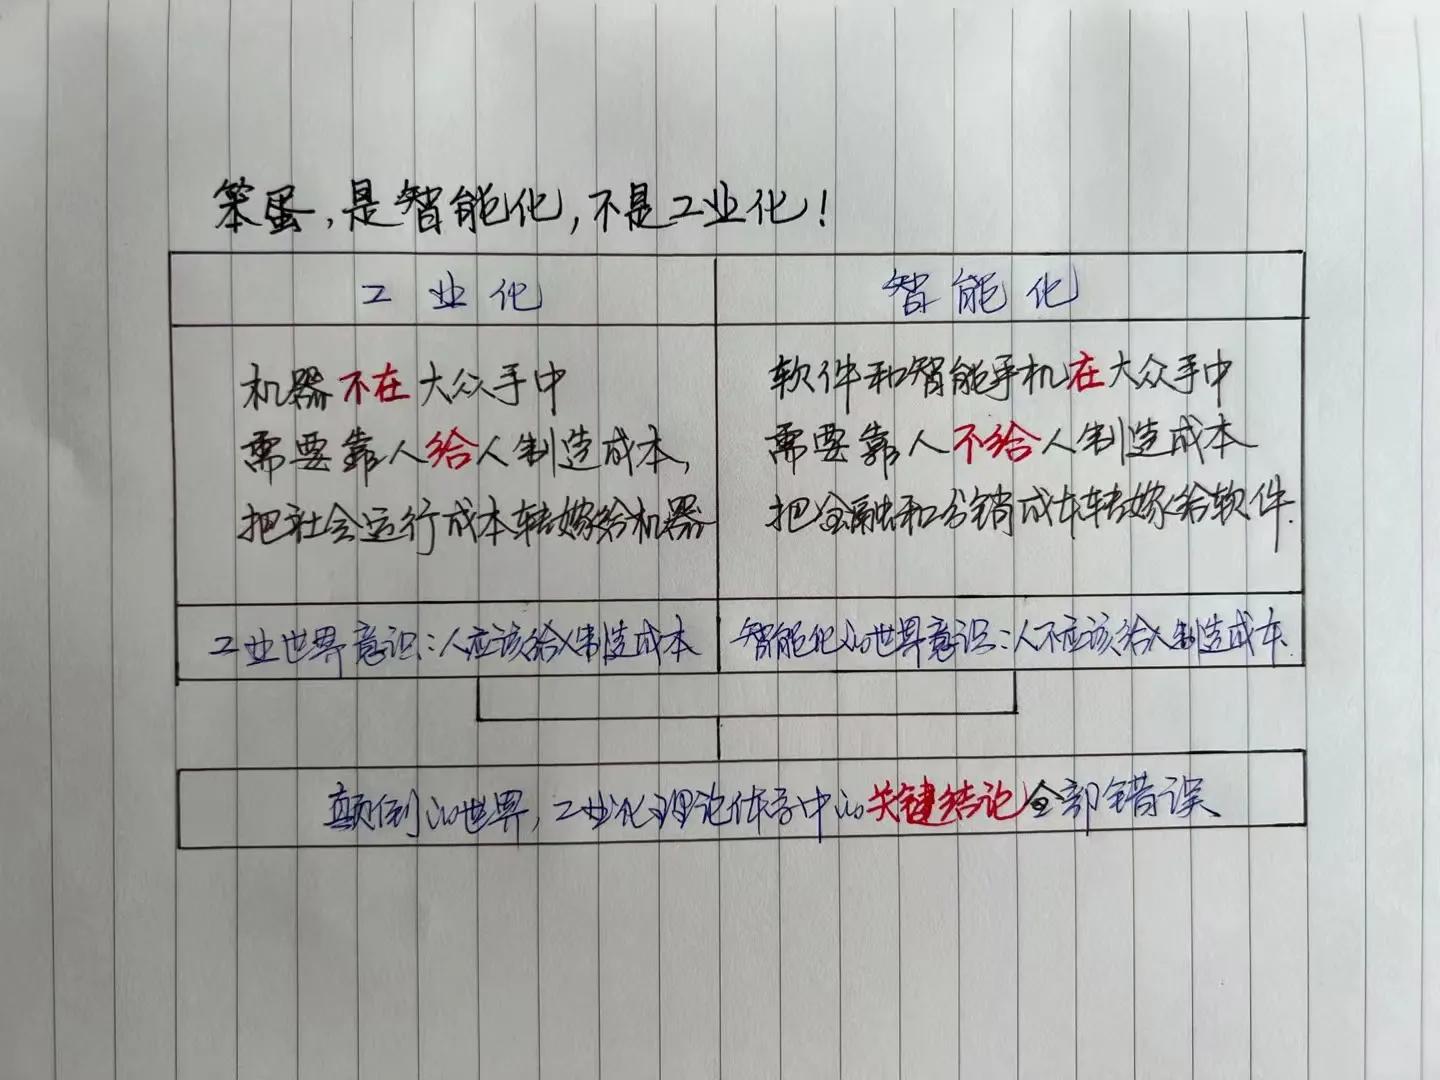 笨蛋,是智能化,不是工业化!
工业化
智能化
机器不在大众手中
需要靠人给人制造成本,
把社会运行成本转嫁给机器
软件和智能手机在大众手中
需要靠人不给人制造成本
把金融和分销成本转嫁给软件.
工业世界意识:人应该给人制造成本
智能化的世界意识:人不应该给人制造成本.
颠倒的世界,工业化理论体系中的关键结论全部错误